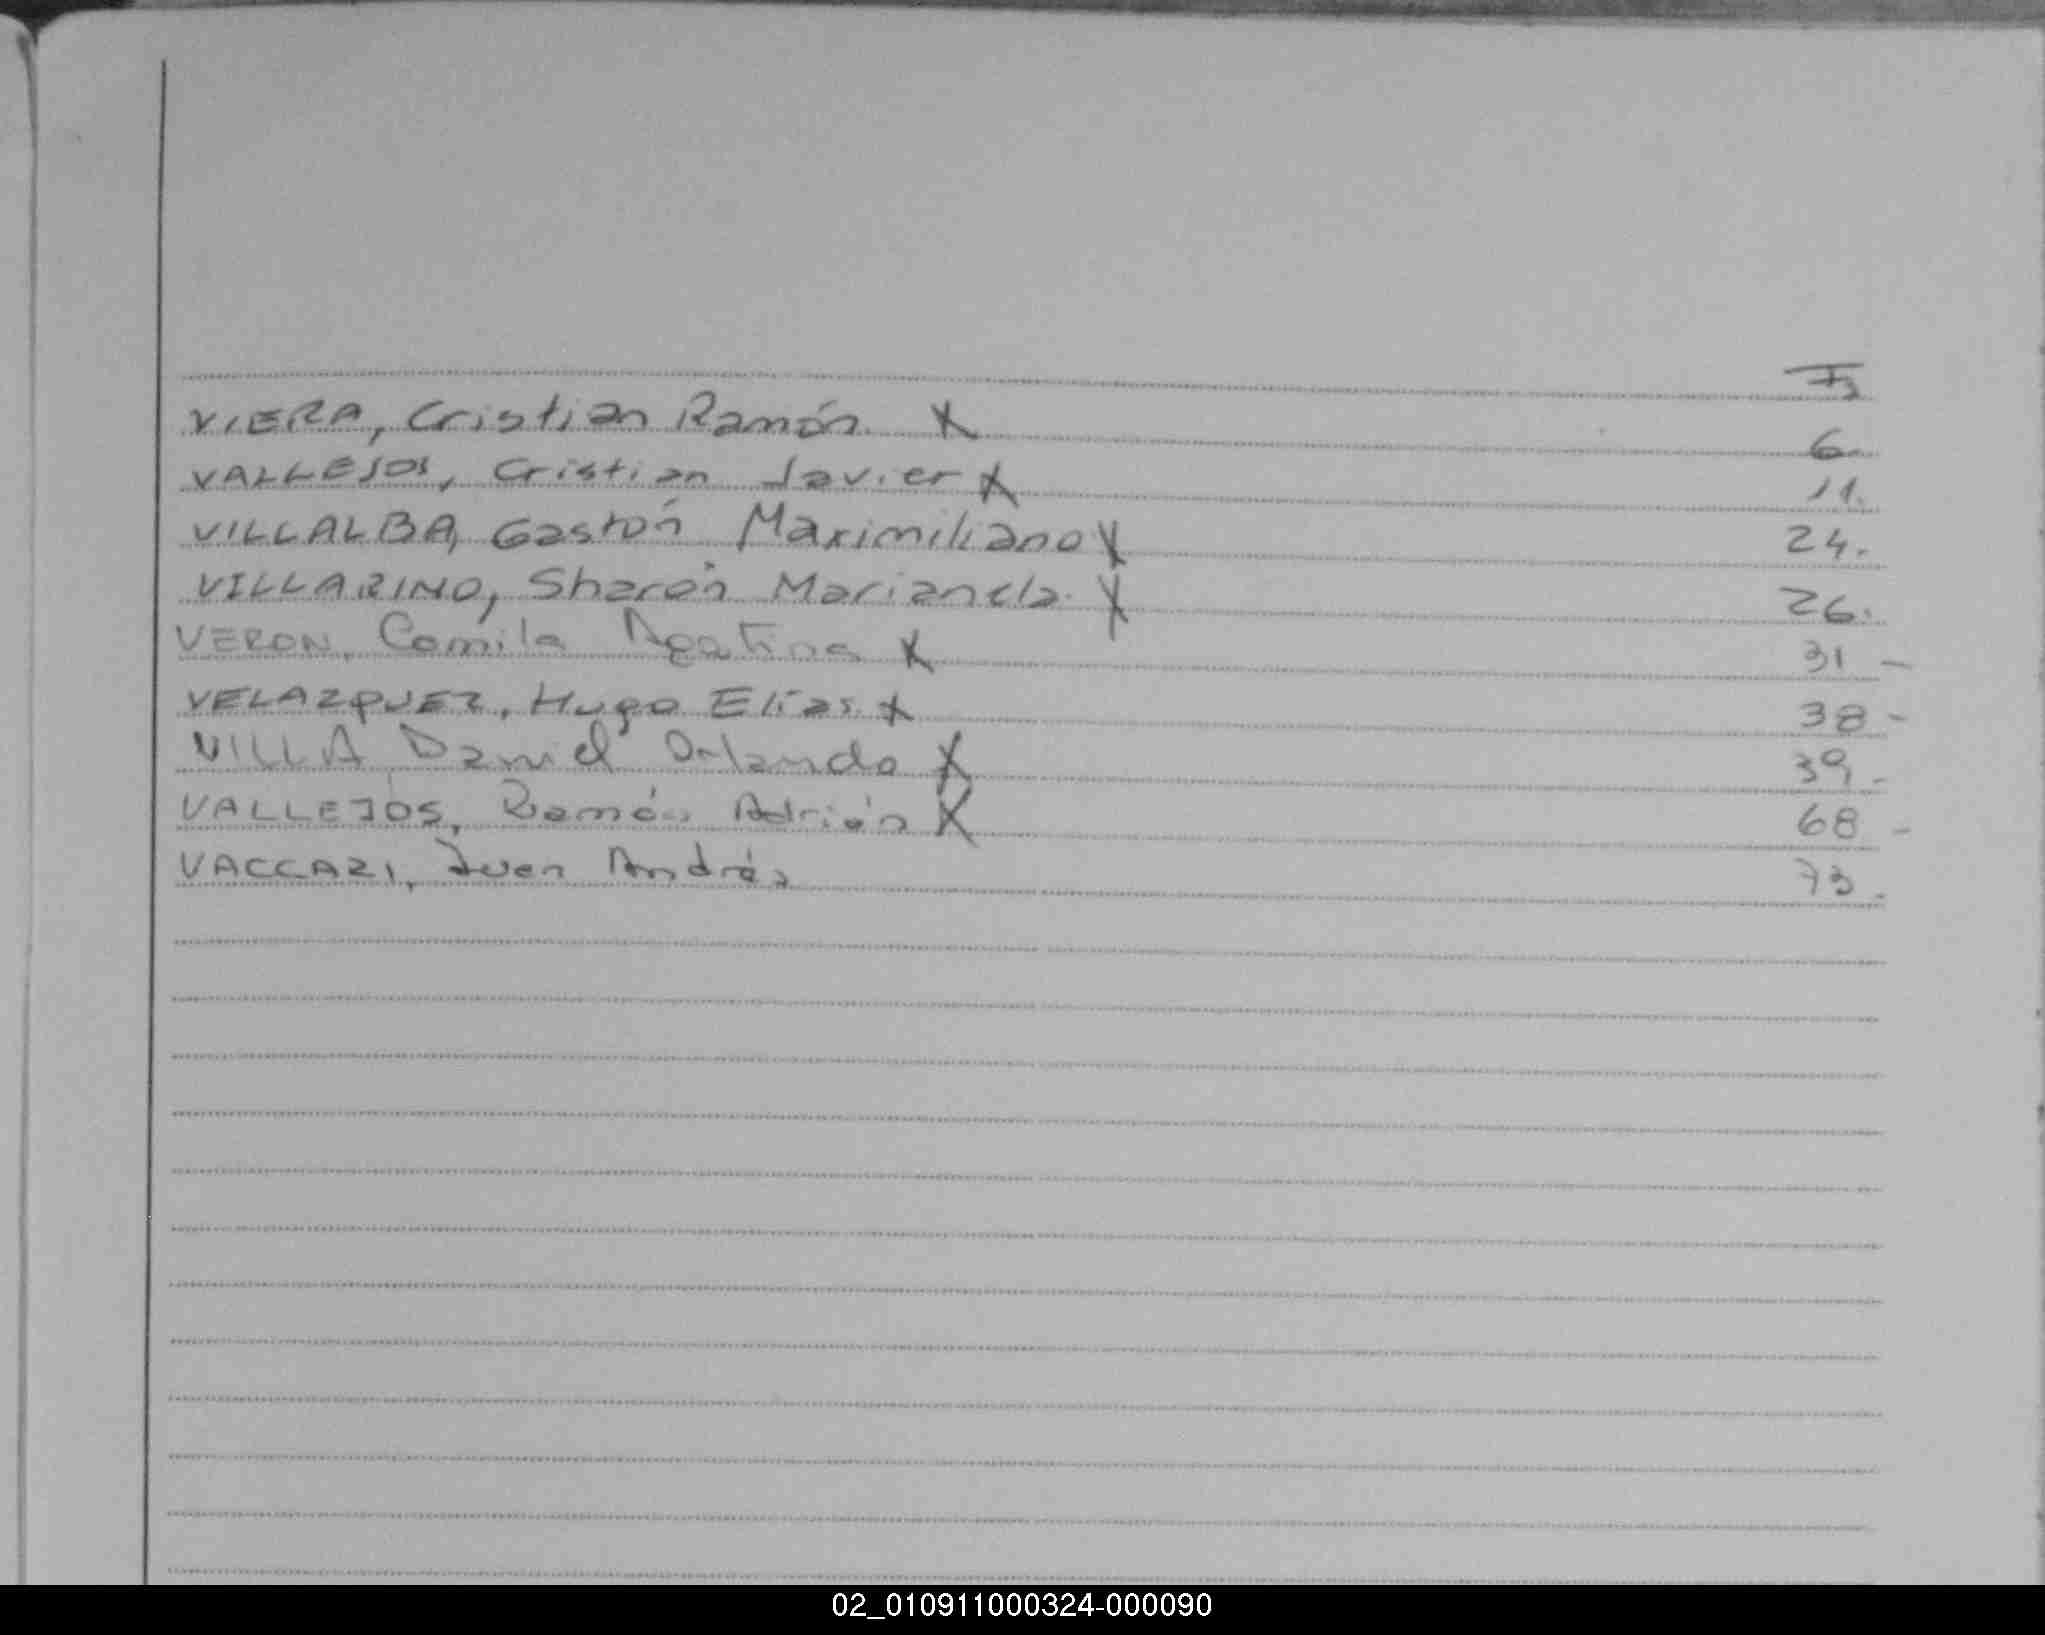 Fs
VIERA, Cristian Ramón X 6.
VALLEJOS, Cristian Javier X 11.
VILLALBA, Gastón Maximiliano X 24.
VILLARINO, Sharon Marianela. X 26.
VERON, Camila Agatina X 31 -
VELAZQUEZ, Hugo Elías. X 38 -
VILLA, Daniel Orlando X 39 -
VALLEJOS, Ramón Adrián X 68 -
VACCARI, Juan Andrés 73 -
02_010911000324-000090